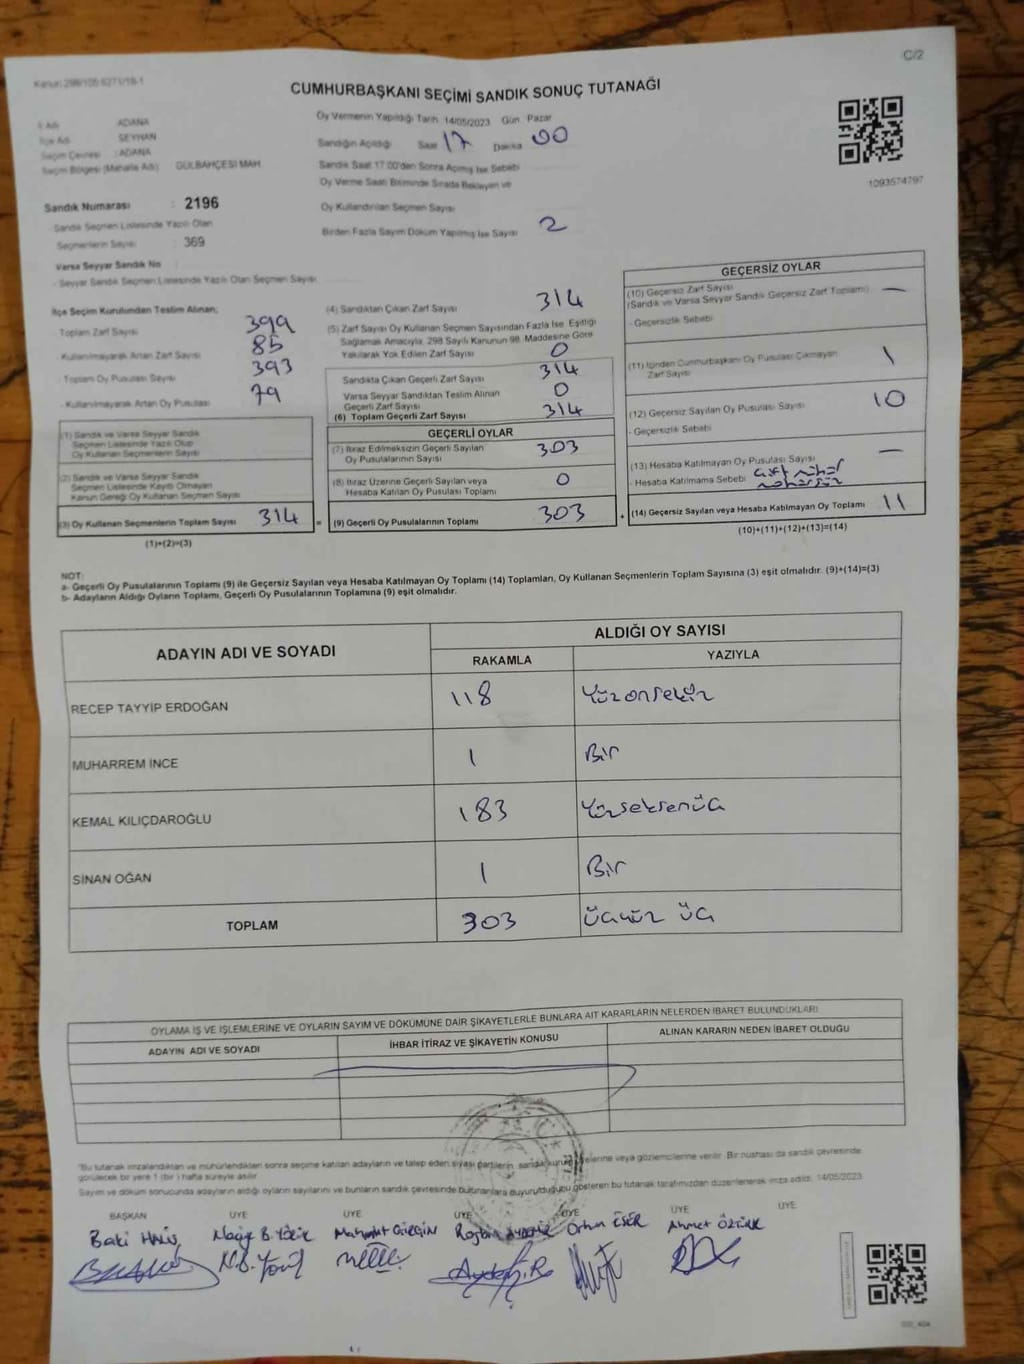 C/2
Kanun: 298/105 6271/18-1
CUMHURBAŞKANI SEÇİMİ SANDIK SONUÇ TUTANAĞI
İl Adı ADANA
İlçe Adı SEYHAN
Seçim Çevresi : ADANA
Seçim Bölgesi (Mahalle Adı) GÜLBAHÇESİ MAH.
Sandık Numarası : 2196
Sandık Seçmen Listesinde Yazılı Olan
Seçmenlerin Sayısı : 369
Varsa Seyyar Sandık No
- Seyyar Sandık Seçmen Listesinde Yazılı Olan Seçmen Sayısı
Oy Vermenin Yapıldığı Tarih 14/05/2023 Gün Pazar
Sandığın Açıldığı Saat 17 Dakika 00
Sandık Saat 17:00'den Sonra Açımış İse Sebebi
Oy Verme Saati Bitiminde Sırada Bekleyen ve
Oy Kullandırılan Seçmen Sayısı
Birden Fazla Sayım Döküm Yapılmış İse Sayısı 2
1093574797
İlçe Seçim Kurulundan Teslim Alınan;
- Toplam Zarf Sayısı 399
- Kullanılmayarak Artan Zarf Sayısı 85
- Toplam Oy Pusulası Sayısı 393
- Kullanılmayarak Artan Oy Pusulası 79
(1) Sandık ve Varsa Seyyar Sandık
Seçmen Listesinde Yazılı Olup
Oy Kullanan Seçmen Sayısı
(2) Sandık ve Varsa Seyyar Sandık
Seçmen Listesinde Kayıtlı Olmayan
Kanun Gereği Oy Kullanan Seçmen Sayısı
(3) Oy Kullanan Seçmenlerin Toplam Sayısı 314
(1)+(2)=(3)
(4) Sandıktan Çıkan Zarf Sayısı 314
(5) Zarf Sayısı Oy Kullanan Seçmen Sayısından Fazla İse, Eşitliği
Sağlamak Amacıyla, 298 Sayılı Kanunun 98. Maddesine Göre
Yakılarak Yok Edilen Zarf Sayısı 0
Sandıkta Çıkan Geçerli Zarf Sayısı 314
Varsa Seyyar Sandıktan Teslim Alınan
Geçerli Zarf Sayısı 0
(6) Toplam Geçerli Zarf Sayısı 314
GEÇERLİ OYLAR
(7) İtiraz Edilmeksizin Geçerli Sayılan
Oy Pusulalarının Sayısı 303
(8) İtiraz Üzerine Geçerli Sayılan veya
Hesaba Katılan Oy Pusulası Toplamı 0
(9) Geçerli Oy Pusulalarının Toplamı 303
GEÇERSİZ OYLAR
(10) Geçersiz Zarf Sayısı
(Sandık ve Varsa Seyyar Sandık Geçersiz Zarf Toplamı) —
- Geçersizlik Sebebi
(11) İçinden Cumhurbaşkanı Oy Pusulası Çıkmayan
Zarf Sayısı 1
(12) Geçersiz Sayılan Oy Pusulası Sayısı 10
- Geçersizlik Sebebi
(13) Hesaba Katılmayan Oy Pusulası Sayısı —
- Hesaba Katılmama Sebebi çift mühür
mühürsüz
(14) Geçersiz Sayılan veya Hesaba Katılmayan Oy Toplamı 11
(10)+(11)+(12)+(13)=(14)
NOT:
a- Geçerli Oy Pusulalarının Toplamı (9) ile Geçersiz Sayılan veya Hesaba Katılmayan Oy Toplamı (14) Toplamları, Oy Kullanan Seçmenlerin Toplam Sayısına (3) eşit olmalıdır. (9)+(14)=(3)
b- Adayların Aldığı Oyların Toplamı, Geçerli Oy Pusulalarının Toplamına (9) eşit olmalıdır.
ADAYIN ADI VE SOYADI ALDIĞI OY SAYISI
RAKAMLA YAZIYLA
RECEP TAYYİP ERDOĞAN 118 Yüzonsekiz
MUHARREM İNCE 1 Bir
KEMAL KILIÇDAROĞLU 183 Yüzseksenüç
SİNAN OĞAN 1 Bir
TOPLAM 303 Üçyüz üç
OYLAMA İŞ VE İŞLEMLERİNE VE OYLARIN SAYIM VE DÖKÜMÜNE DAİR ŞİKAYETLERLE BUNLARA AİT KARARLARIN NELERDEN İBARET BULUNDUKLARI
ADAYIN ADI VE SOYADI İHBAR İTİRAZ VE ŞİKAYETİN KONUSU ALINAN KARARIN NEDEN İBARET OLDUĞU
"Bu tutanak imzalandıktan ve mühürlendikten sonra seçime katılan adayların ve talep eden siyasi partilerin sandık kurulu üyelerine veya gözlemcilerine verilir. Bir nüshası da sandık çevresinde
görülecek bir yere 1 (bir) hafta süreyle asılır.
Sayım ve döküm sonucunda adayların aldığı oyların sayılarını ve bunların sandık çevresinde bulunanlara duyurulduğunu gösteren bu tutanak tarafımızdan düzenlenerek imza edildi. 14/05/2023
BAŞKAN ÜYE ÜYE ÜYE ÜYE ÜYE ÜYE
Baki Mahmut Orhan ESER Ahmet ÖZTÜRK